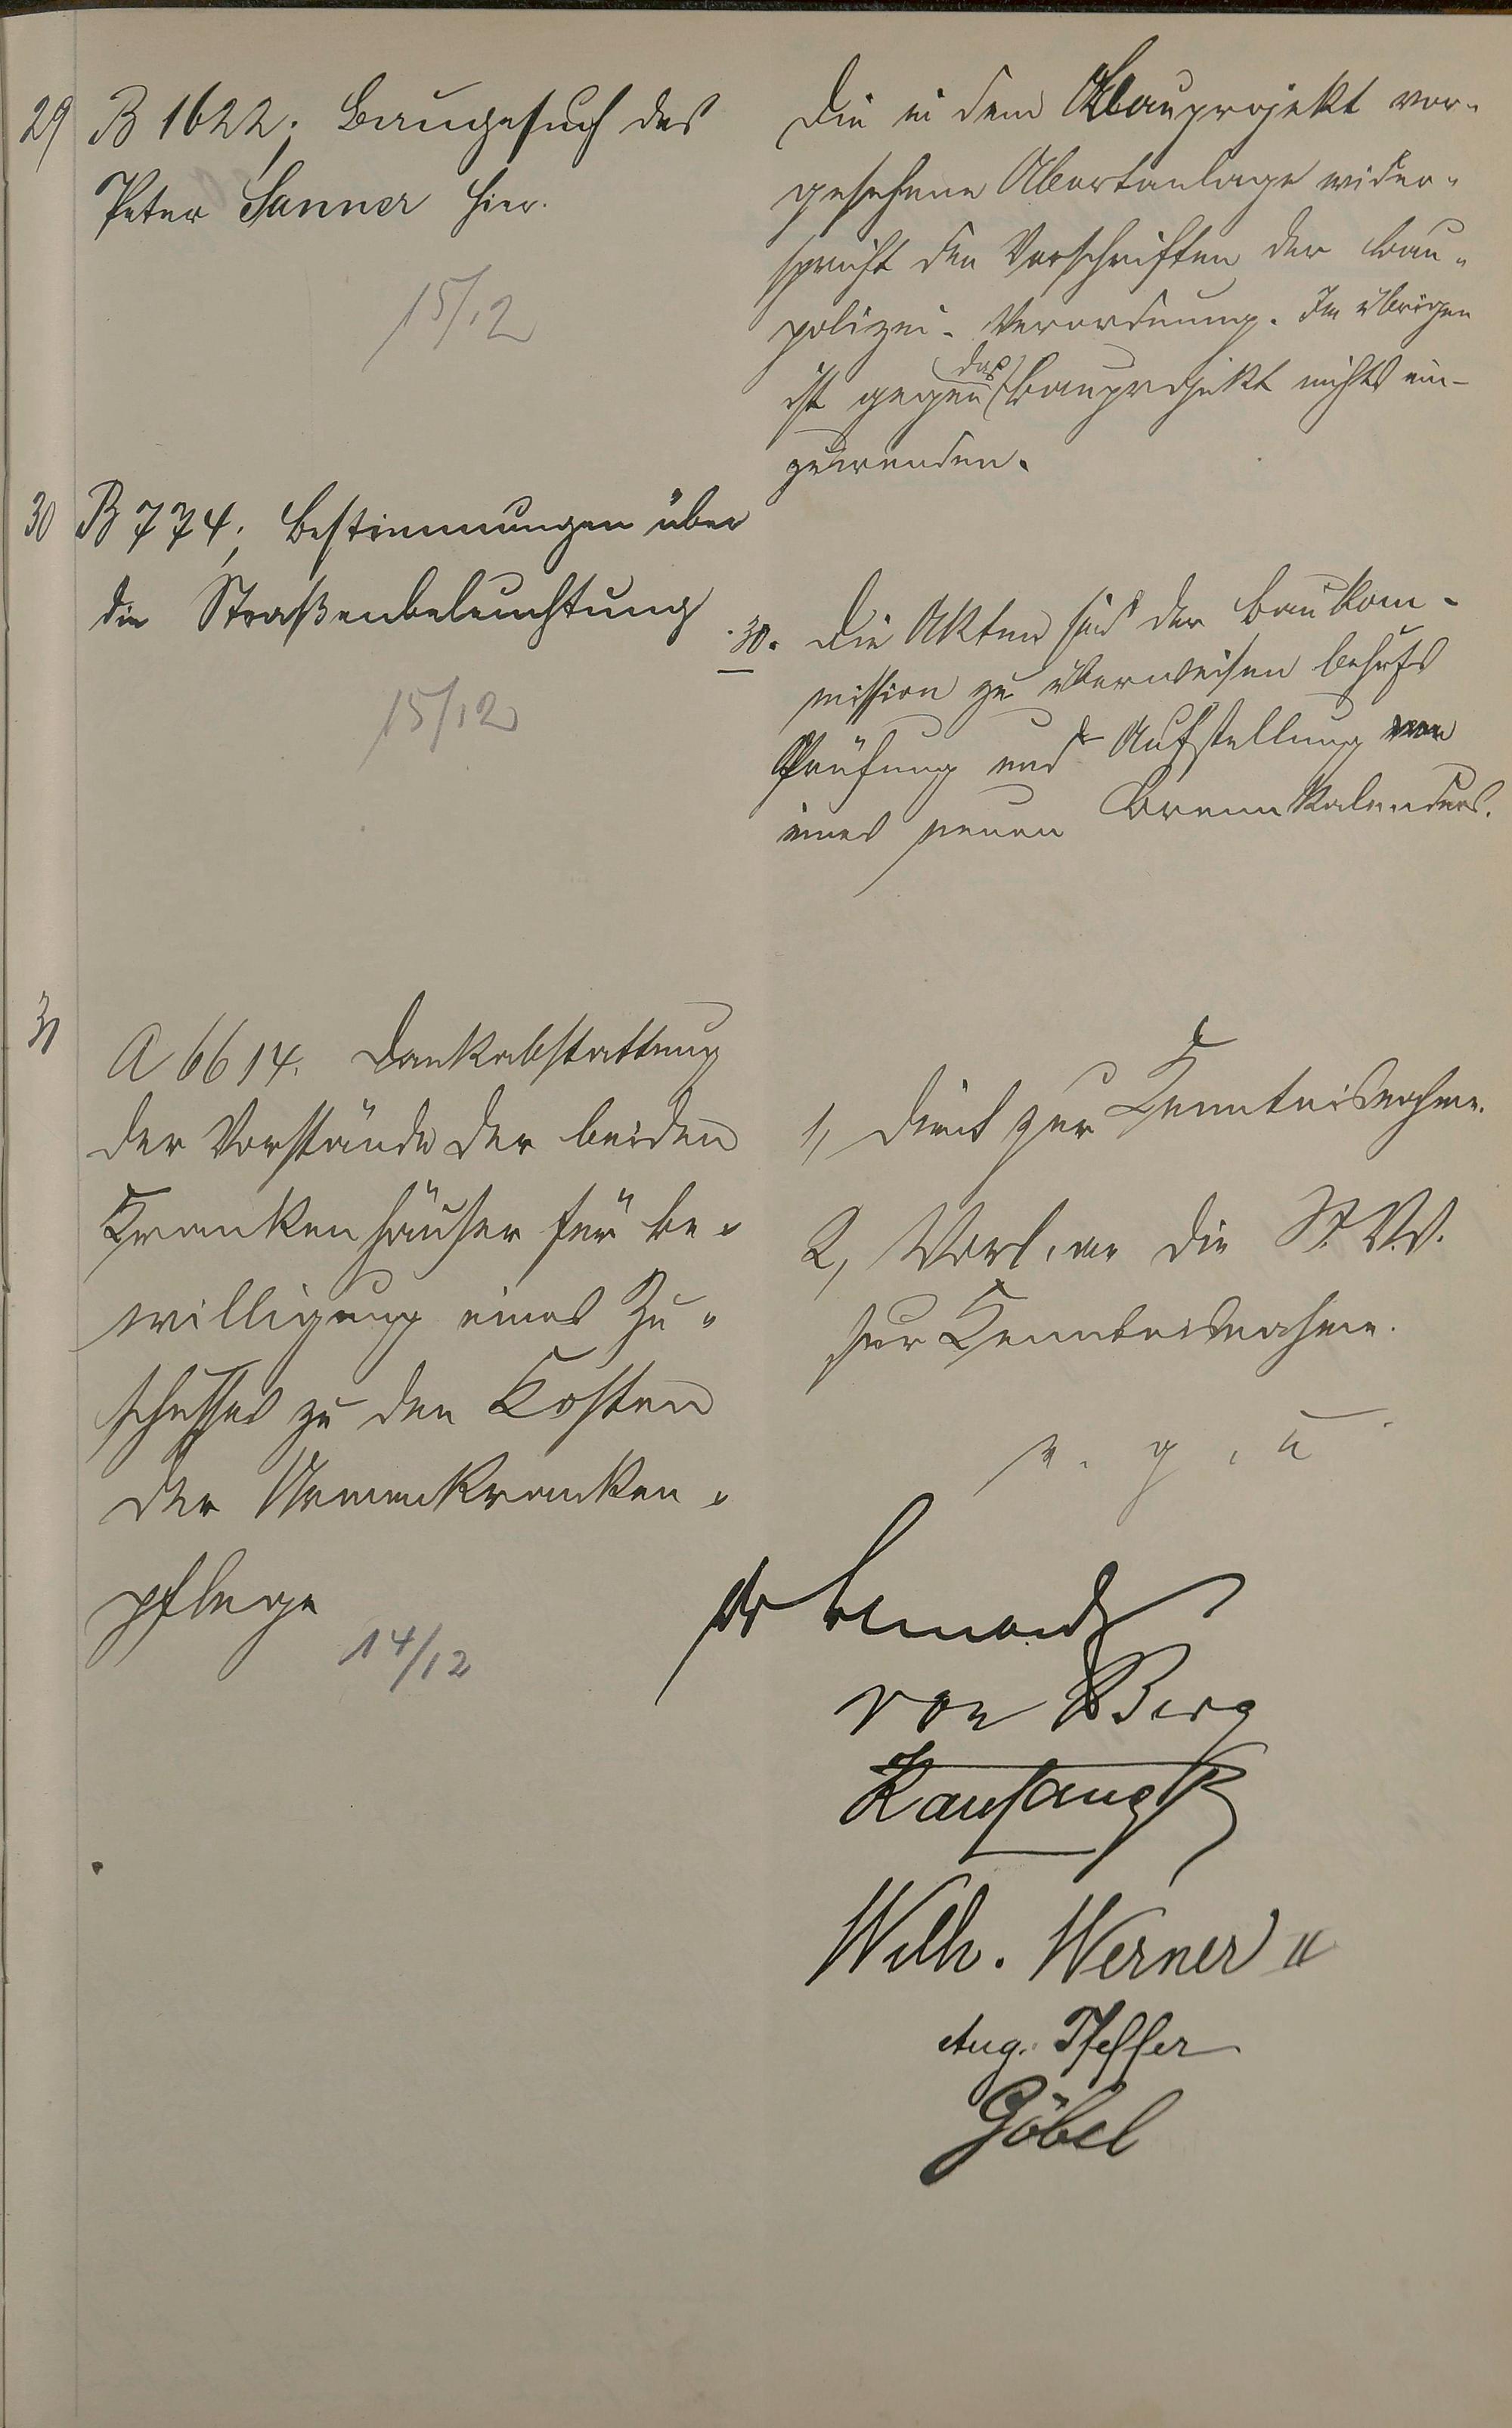 29
B 1622; Baugesuch des
Peter Sanner hier.
15/12
Die in dem Bauprojekt vor-
gesehene Abortanlage wider-
spricht den Vorschriften der Bau-
polizei-Verordnung. Im übrigen
ist gegen das Bauprojekt nichts ein-
zuwenden.
30
B 774; Bestimmungen über
die Straßenbeleuchtung
15/12
30. Die Akten sind der Baukom-
mission zu überweisen behufs
Prüfung und Aufstellung
eines neuen Brennkalenders.
31
A 6614. Dankabstattung
der Vorstände der beiden
Krankenhäuser für Be-
willigung eines Zu-
schusses zu den Kosten
der Armenkranken-
pflege
14/12
1, Dient zur Kenntnisnahme.
2, Vorl. an die St. V. V.
zur Kenntnisnahme.
v. g. u
von Berg
Kaufang
Wilh. Werner II
Aug. Pfeffer
Göbel